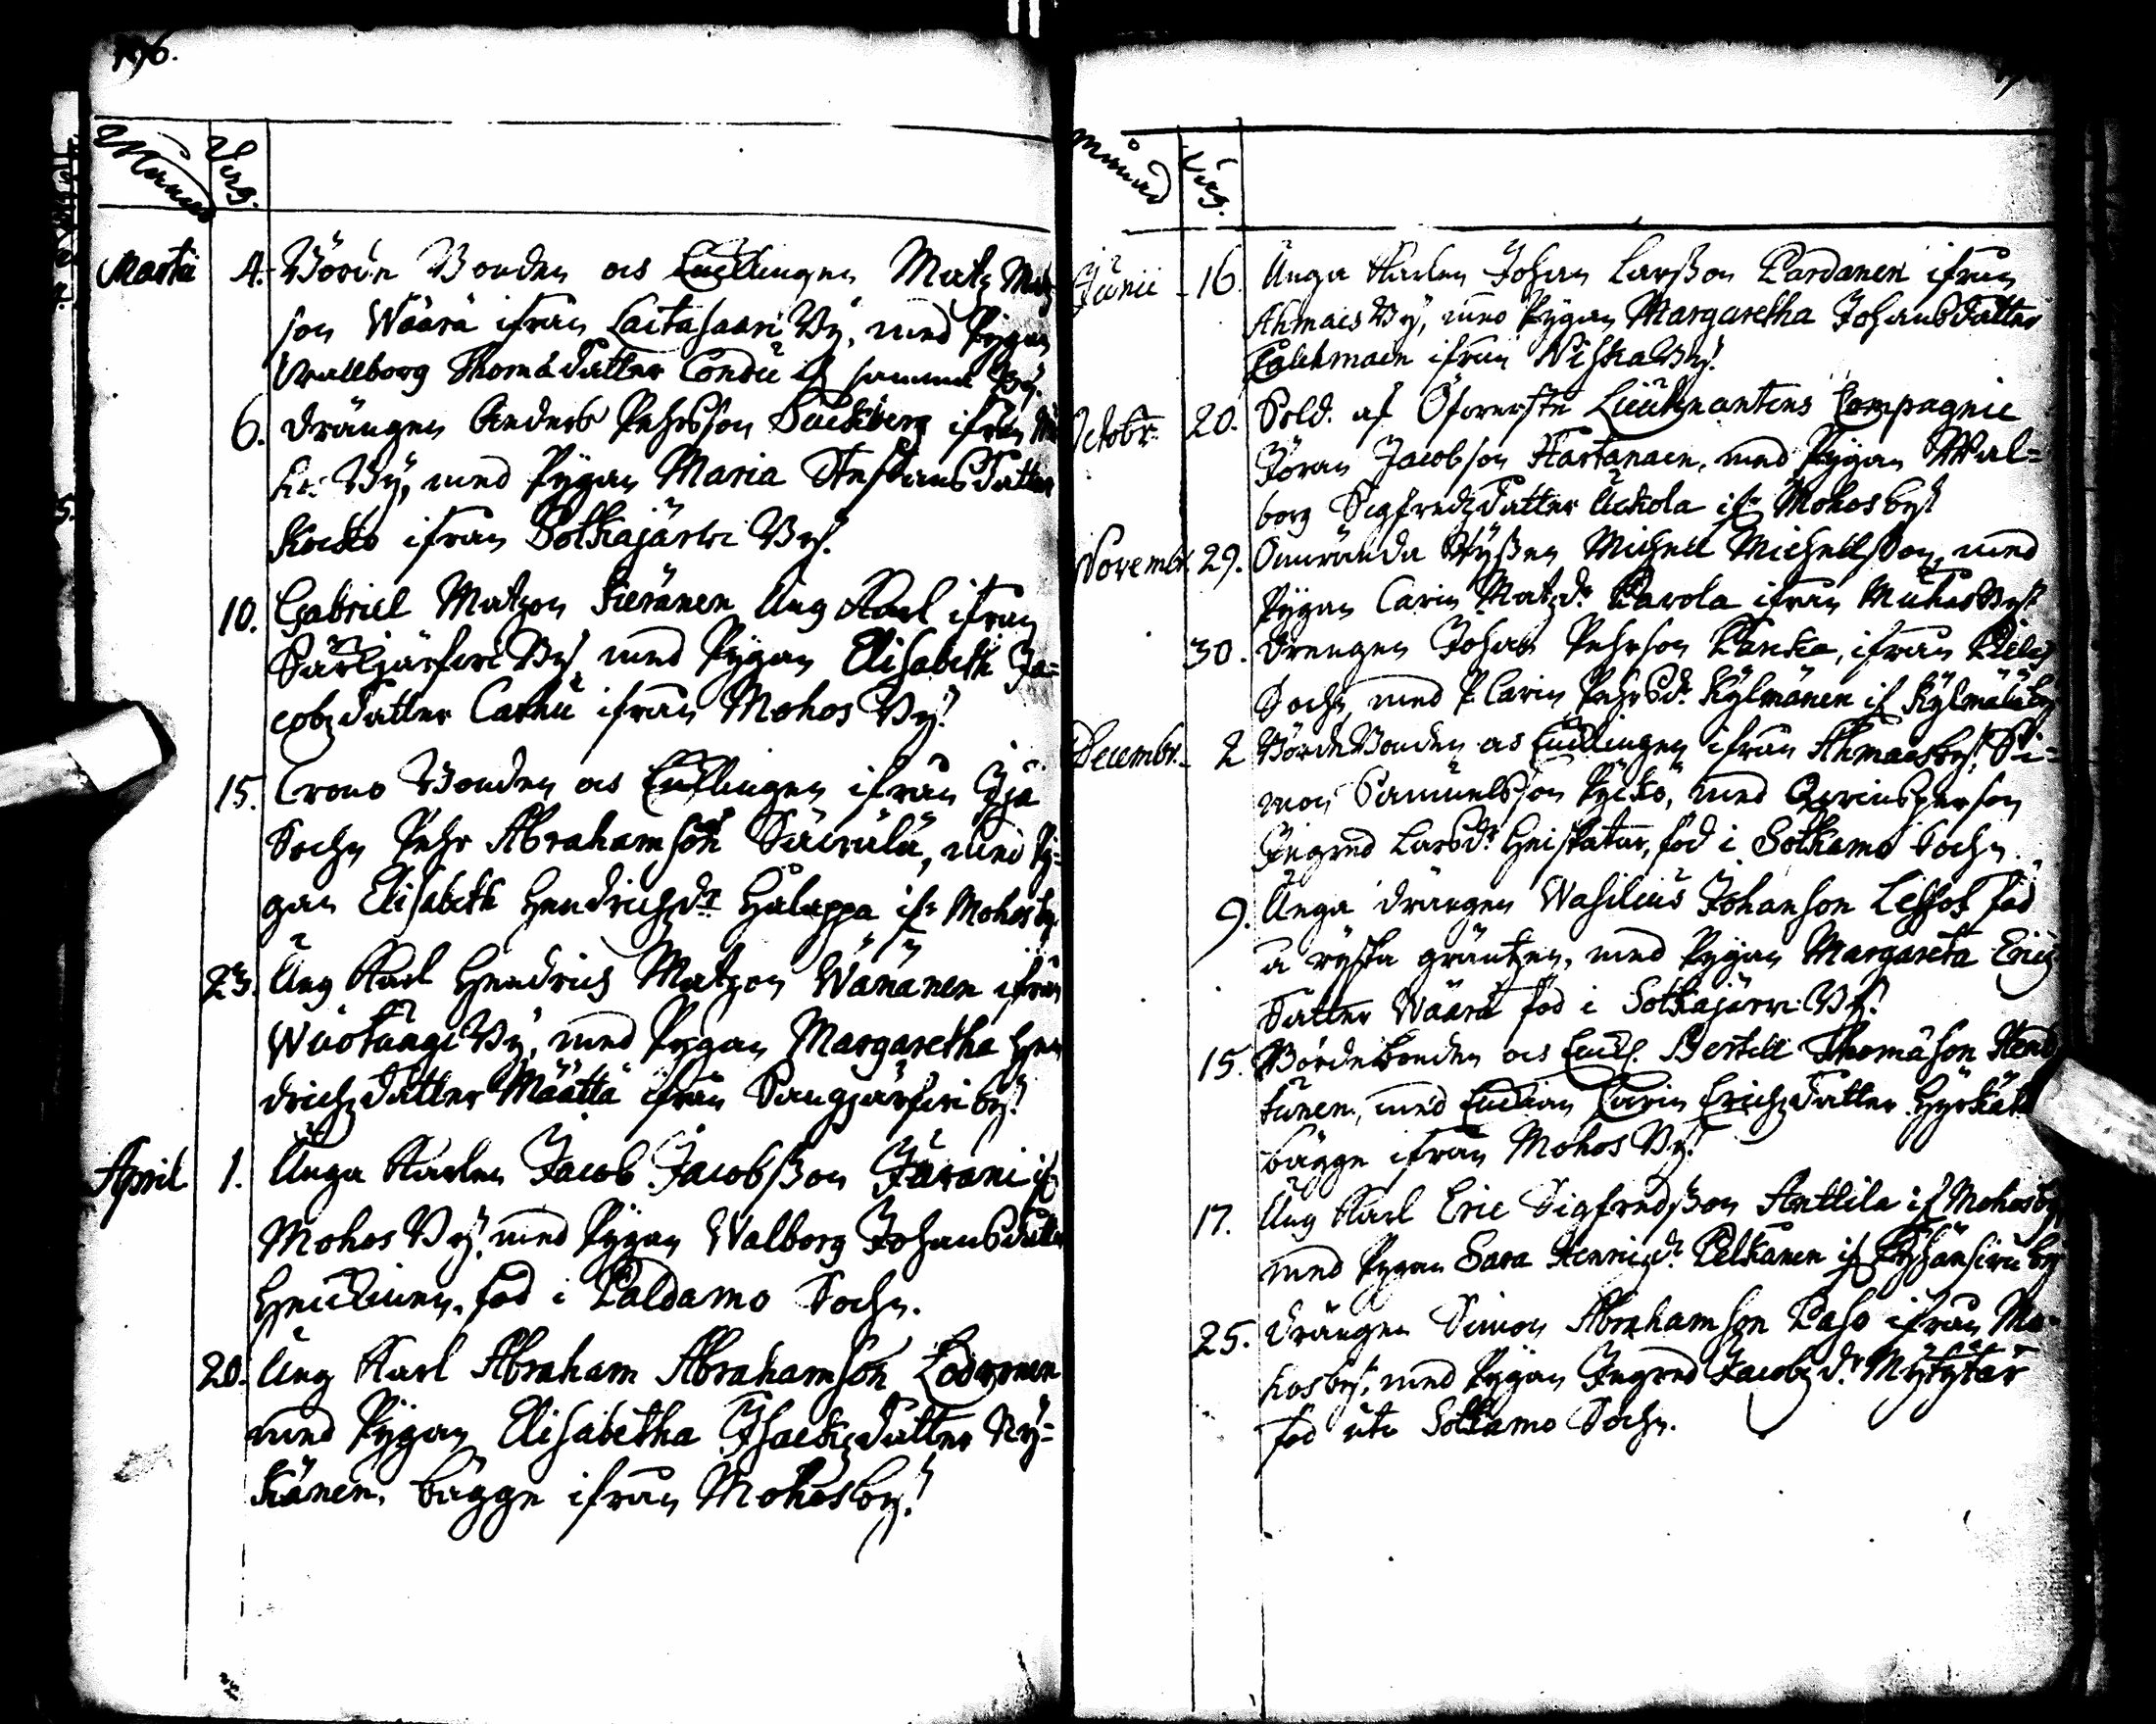 196.
Månad
Dag.
Martii 4. Börde Bonden as Enklingen Matz Matz
son Wäärä ifrån Laitasaari By, med Pygan
Wallborg Thomæ Datter Condu if samma By.
6. Drängen Anders Pehrsson Suckberg ifrån
By, med Pygan Maria Steffans Datter
Kocko ifrån Sotkajärwi By.
10. Gabriel Matzon Kieränen Ung Karl ifrån
Särkijärfwi By med Pygan Elisabeth Ja=
cobz Datter Carhu ifrån Mohos By.
15. Crono Bonden as Enklingen ifrån Ijå
Sochn Pehr Abrahamson Säirälä, med Py=
gan Elisabeth Hendrichz dr Halappa ifr Mohos by
23. Ung Karl Hendrich Matzon Wänänen ifrån
Wuotungi By, med Pygan Margaretha Hen
drichz Datter Määttä ifrån Sangjärfwi by.
April 1. Unga Karlen Jacob Jacobsson Järani if
Mohos By, med Pygan Walborg Johans Datter
Heickinen, föd i Paldamo Sochn.
20. Ung Karl Abraham Abrahamson
med Pygan Elisabetha Ihsackz Datter Ny=
känen, bägge ifrån Mohos by.
Månad
Dag.
Junii 16. Unga Karlen Johan Larsson Pardanen ifrån
Ahmas By, med Pygan Margaretha Johans Datter
ifrån Niska By.
Octobr. 20. Sold. af Öfwerste Lieutnantens Compagnie
Jöran Jacobson Kastanaen, med Pygan Wal=
borg Sigfredz Datter Uckola ifr Mohos by
Novembr. 29. Michell Michellsson, med
Pygan Carin Matz dr Parola ifrån Muhos By
30. Drengen Johan Pehrson Pancka, ifrån
Sochn, med P. Carin Pehrs dr Kylmänen if Kylmälä by
Decembr. 2 Börde Bonden as Enklingen ifrån Ahmas by, Si=
mon Samuelsson Pyckö, med Qwinsperson
Ingred Lars dr Heiskatar, föd i Sotkamo Sochn.
9. Unga drängen Wasilius Johanson född
a ryska gräntzen, med Pygan Margareta Erichz
Datter Wäärä föd i Sotkajärwi By.
15. Börde bonden as Enckl. Bertill Thomæson Kend
tunen, med Enckian Carin Erichz Datter
bägge ifrån Mohos By.
17. Ung Karl Eric Sigfredsson Anttila if Mohos by,
med Pygan Sara Henrichz dr Pelkanen if by
25. Drängen Simon Abrahamson Paso ifrån Mo-
hos by, med Pygan Ingred Jacobz dr Mytytär
föd uti Sotkamo Sochn.